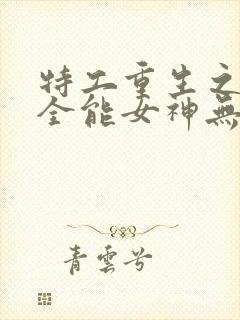 特工重生之
全能女神無
青雲兮